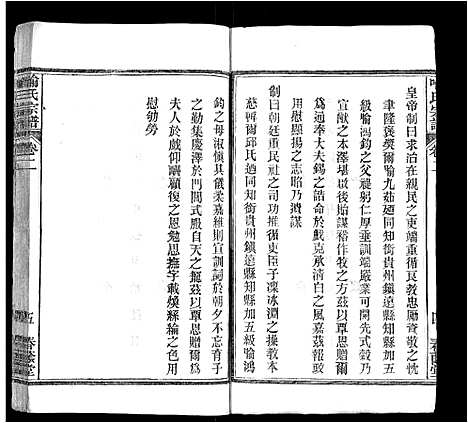 皇帝制曰求治在親民之吏端重循良教忠厲資敬之忱
聿隆褒奬爾喻九茹廼同知銜貴州鎮遠縣知縣加五
級喻鴻鈞之父褆躬仁厚垂訓端嚴業可開先式榖乃
宣猷之本澤堪以後貽謀裕作牧之方茲以覃恩贈爾
爲通奉大夫錫之誥命於戲克承清白之風嘉茲報政
用慰顯揚之志畀乃謨
制曰朝廷重民社之司功推循吏臣子凜冰淵之操教本
慈幃爾邱氏廼同知銜貴州鎮遠縣知縣加五級喻鴻
鈞之母淑慎其儀柔嘉維則宣訓詞於朝夕不忘育子
之勤集慶澤於門閭式殿自天之寵茲以覃恩贈爾爲
夫人於戲 龐顧復之恩勉思撫字載煥絲綸之色用
慰劬勞
喻氏宗譜
卷二
五
春
堂
氏宗譜
卷
四
春
堂